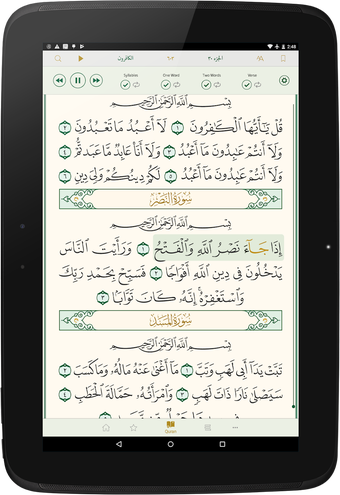 2:48
الكافرون الجزء ٣٠
Syllables One Word Two Words Verse
بِسْمِ ٱللَّهِ ٱلرَّحْمَـٰنِ ٱلرَّحِيمِ
قُلْ يَـٰٓأَيُّهَا ٱلْكَـٰفِرُونَ ١ لَآ أَعْبُدُ مَا تَعْبُدُونَ ٢
وَلَآ أَنتُمْ عَـٰبِدُونَ مَآ أَعْبُدُ ٣ وَلَآ أَنَا۠ عَابِدٌ مَّا عَبَدتُّمْ ٤
وَلَآ أَنتُمْ عَـٰبِدُونَ مَآ أَعْبُدُ ٥ لَكُمْ دِينُكُمْ وَلِىَ دِينِ ٦
سُورَةُ النَّصْرِ
بِسْمِ ٱللَّهِ ٱلرَّحْمَـٰنِ ٱلرَّحِيمِ
إِذَا جَآءَ نَصْرُ ٱللَّهِ وَٱلْفَتْحُ ١ وَرَأَيْتَ ٱلنَّاسَ
يَدْخُلُونَ فِى دِينِ ٱللَّهِ أَفْوَاجًا ٢ فَسَبِّحْ بِحَمْدِ رَبِّكَ
وَٱسْتَغْفِرْهُ إِنَّهُۥ كَانَ تَوَّابًۢا ٣
سُورَةُ المَسَدِ
بِسْمِ ٱللَّهِ ٱلرَّحْمَـٰنِ ٱلرَّحِيمِ
تَبَّتْ يَدَآ أَبِى لَهَبٍ وَتَبَّ ١ مَآ أَغْنَىٰ عَنْهُ مَالُهُۥ وَمَا كَسَبَ ٢
سَيَصْلَىٰ نَارًا ذَاتَ لَهَبٍ ٣ وَٱمْرَأَتُهُۥ حَمَّالَةَ ٱلْحَطَبِ ٤
Quran